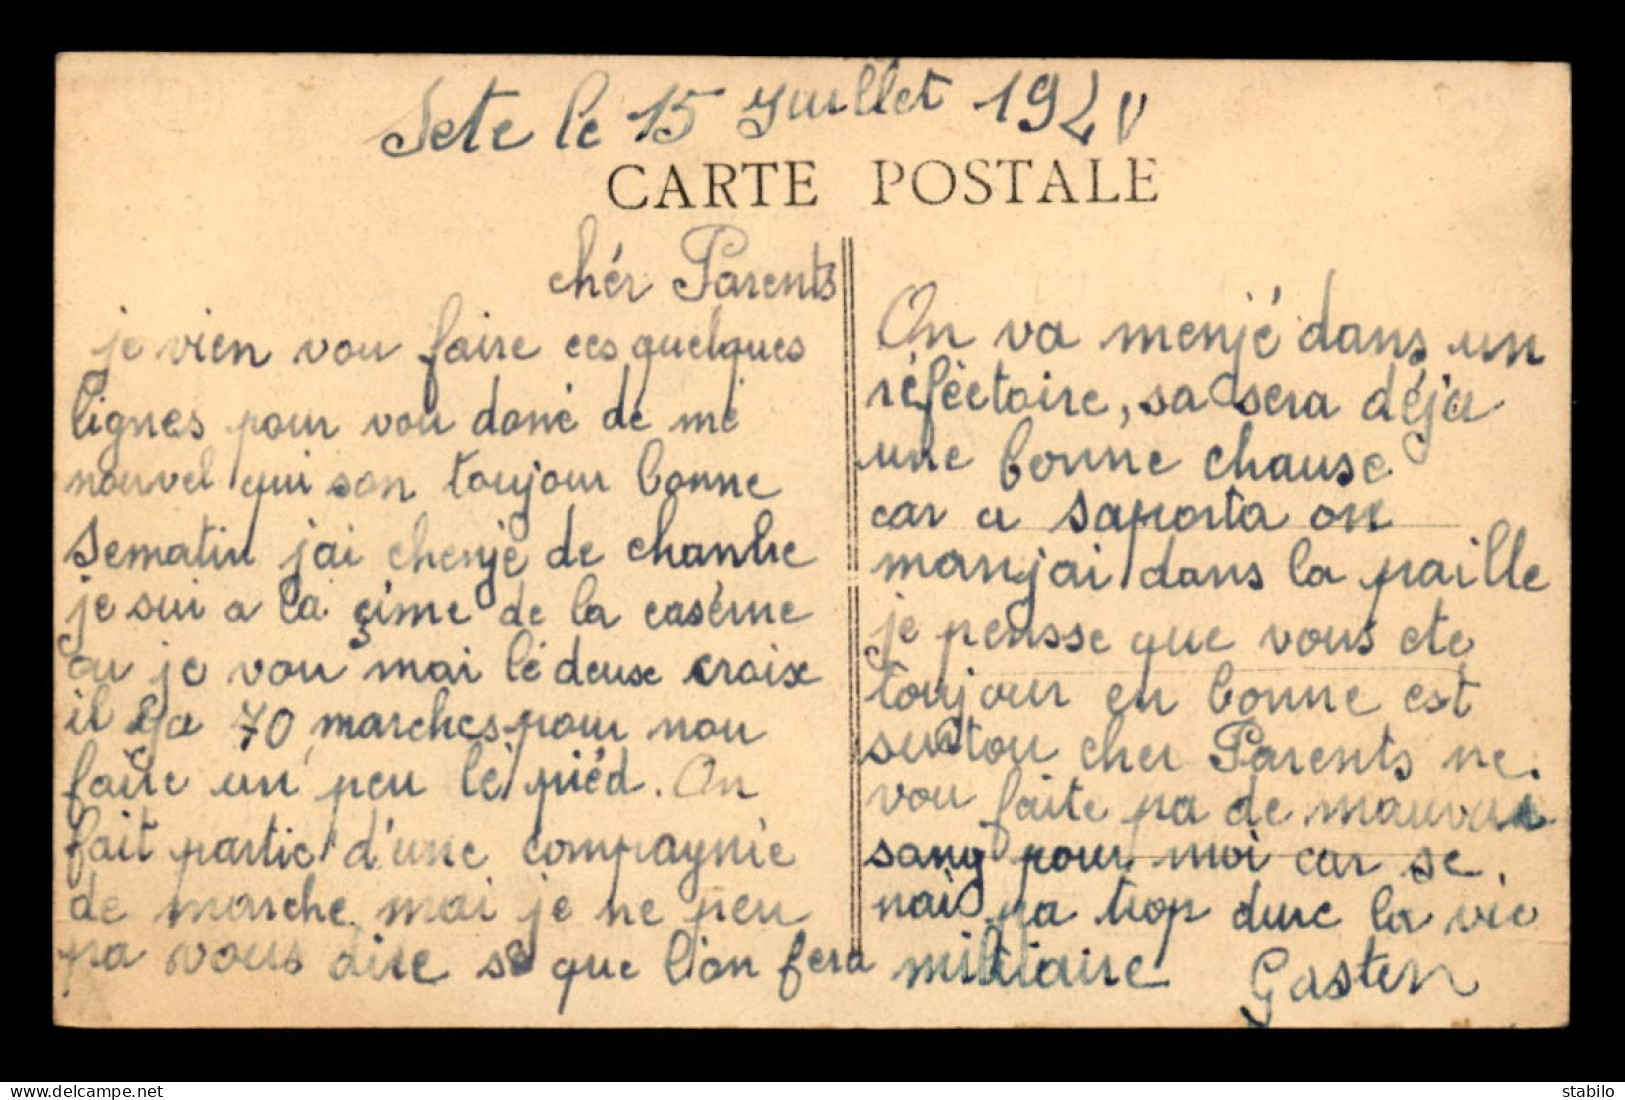 Sete le 15 Juillet 192
CARTE POSTALE
chér Parents
je vien vou faire ces quelques
lignes pour vou doné de mé
nouvel qui son toujour bonne
Sematin jai chenjé de chanbre
je sui a la çime de la casérne
ou je vou mai lé deux croix
il ya 70 marches pour nou
faire un peu lé piéd. On
fait partie d'une compagnie
de marche moi je ne peu
pa vous dire se que l'on fera
On va menjé dans un
réféctoire, sa sera déja
une bonne chause
car a Saporta on
manjai dans la paille
je pensse que vous ete
toujour en bonne est
surtou cher Parents ne
vou faite pa de mauvai
sang pour moi car se
nais pa trop dure la vie
militaire Gaston
stabilo